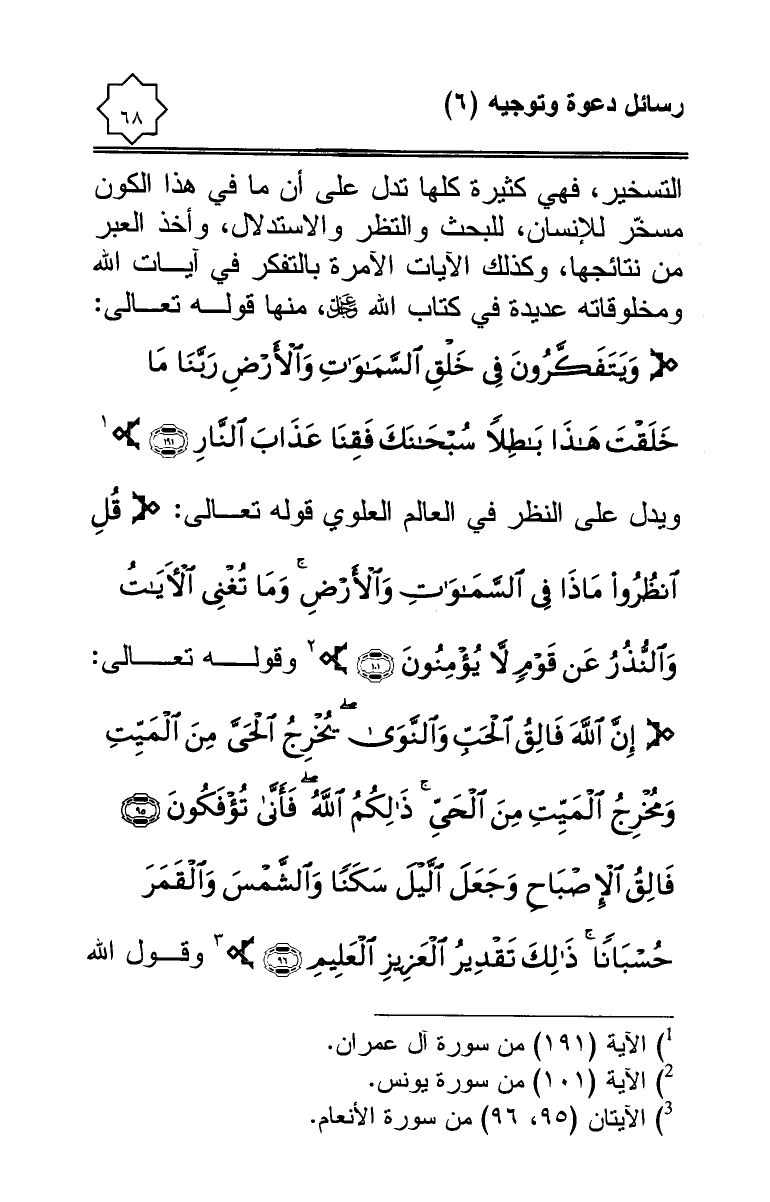 رسائل دعوة وتوجيه (٦)
٦٨
التسخير، فهي كثيرة كلها تدل على أن ما في هذا الكون
مسخّر للإنسان، للبحث والتظر والاستدلال، وأخذ العبر
من نتائجها، وكذلك الآيات الآمرة بالتفكر في آيـــات الله
ومخلوقاته عديدة في كتاب الله ﷻ، منها قولـــه تعـــالى:
﴿ وَيَتَفَكَّرُونَ فِي خَلْقِ ٱلسَّمَـٰوَٰتِ وَٱلْأَرْضِ رَبَّنَا مَا
خَلَقْتَ هَـٰذَا بَـٰطِلًا سُبْحَـٰنَكَ فَقِنَا عَذَابَ ٱلنَّارِ ١٩١ ﴾ ١
ويدل على النظر في العالم العلوي قوله تعـــالى: ﴿ قُلِ
ٱنظُرُوا۟ مَاذَا فِى ٱلسَّمَـٰوَٰتِ وَٱلْأَرْضِ ۚ وَمَا تُغْنِى ٱلْـَٔايَـٰتُ
وَٱلنُّذُرُ عَن قَوْمٍ لَّا يُؤْمِنُونَ ١٠١ ﴾ ٢ وقولـــــه تعـــــالى:
﴿ إِنَّ ٱللَّهَ فَالِقُ ٱلْحَبِّ وَٱلنَّوَىٰ ۖ يُخْرِجُ ٱلْحَىَّ مِنَ ٱلْمَيِّتِ
وَمُخْرِجُ ٱلْمَيِّتِ مِنَ ٱلْحَىِّ ۚ ذَٰلِكُمُ ٱللَّهُ ۖ فَأَنَّىٰ تُؤْفَكُونَ ٩٥
فَالِقُ ٱلْإِصْبَاحِ وَجَعَلَ ٱلَّيْلَ سَكَنًا وَٱلشَّمْسَ وَٱلْقَمَرَ
حُسْبَانًا ۚ ذَٰلِكَ تَقْدِيرُ ٱلْعَزِيزِ ٱلْعَلِيمِ ٩٦ ﴾ ٣ وقـــول الله
1) الآية (١٩١) من سورة آل عمران.
2) الآية (١٠١) من سورة يونس.
3) الآيتان (٩٥، ٩٦) من سورة الأنعام.